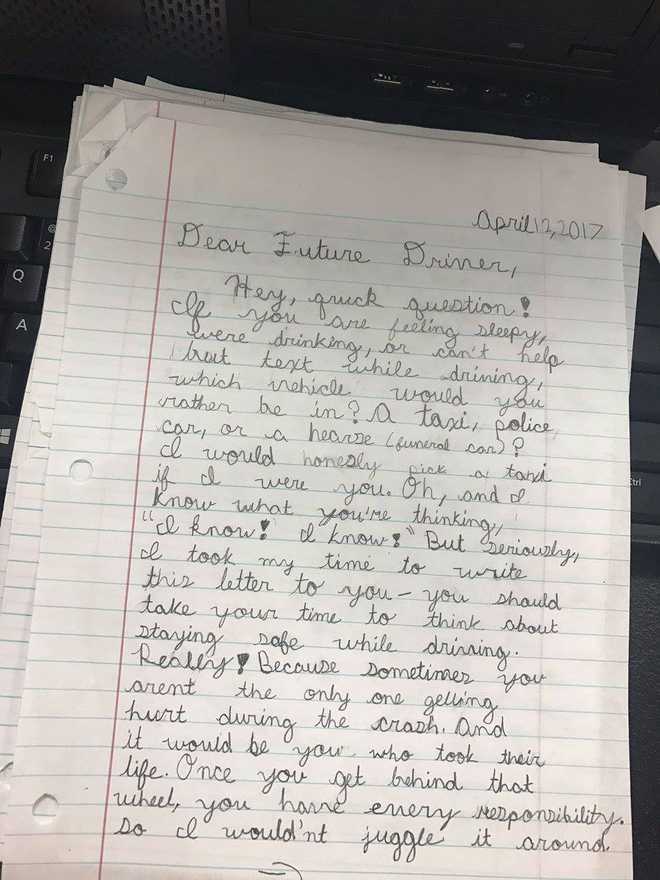 April 12, 2017
Dear Future Driver,
Hey, quick question!
If you are feeling sleepy,
were drinking, or can't help
but text while driving,
which vehicle would you
rather be in? A taxi, police
car, or a hearse (funeral car)?
I would honesly pick a taxi
if I were you. Oh, and I
know what you're thinking,
"I know! I know!" But seriously,
I took my time to write
this letter to you - you should
take your time to think about
staying safe while driving.
Really! Because sometimes you
arent the only one getting
hurt during the crash. And
it would be you who took their
life. Once you get behind that
wheel, you have every responsibility.
So I would'nt juggle it around.
F1
2
Q
A
Ctrl